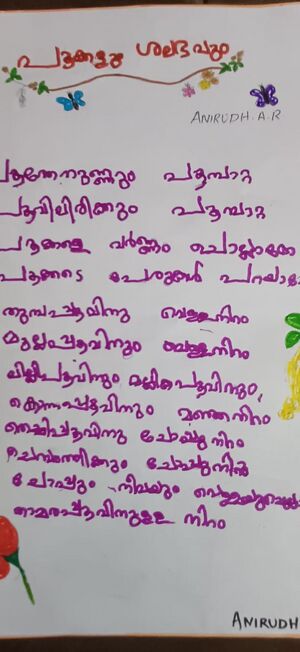 പൂക്കളും ശലഭവും
ANIRUDH.A.R
പൂന്തേനുണ്ണും പൂമ്പാറ്റ
പൂവിലിരിക്കും പൂമ്പാറ്റ
പൂക്കളെ വർണ്ണം ചൊല്ലാമോ
പൂക്കടെ പേരുകൾ പറയാമോ
തുമ്പപ്പൂവിനു വെള്ളനിറം
മുല്ലപ്പൂവിനും വെള്ളനിറം
ലില്ലിപൂവിനും മല്ലികപൂവിനും,
കൊന്നപ്പൂവിനും മഞ്ഞനിറം
തെച്ചിപ്പൂവിനു ചോപ്പു നിറം
ചെമ്പരത്തിക്കും ചോപ്പുനിറം
ചോപ്പും നീലയും
താമരപ്പൂവിനുള്ള നിറം
ANIRUDH